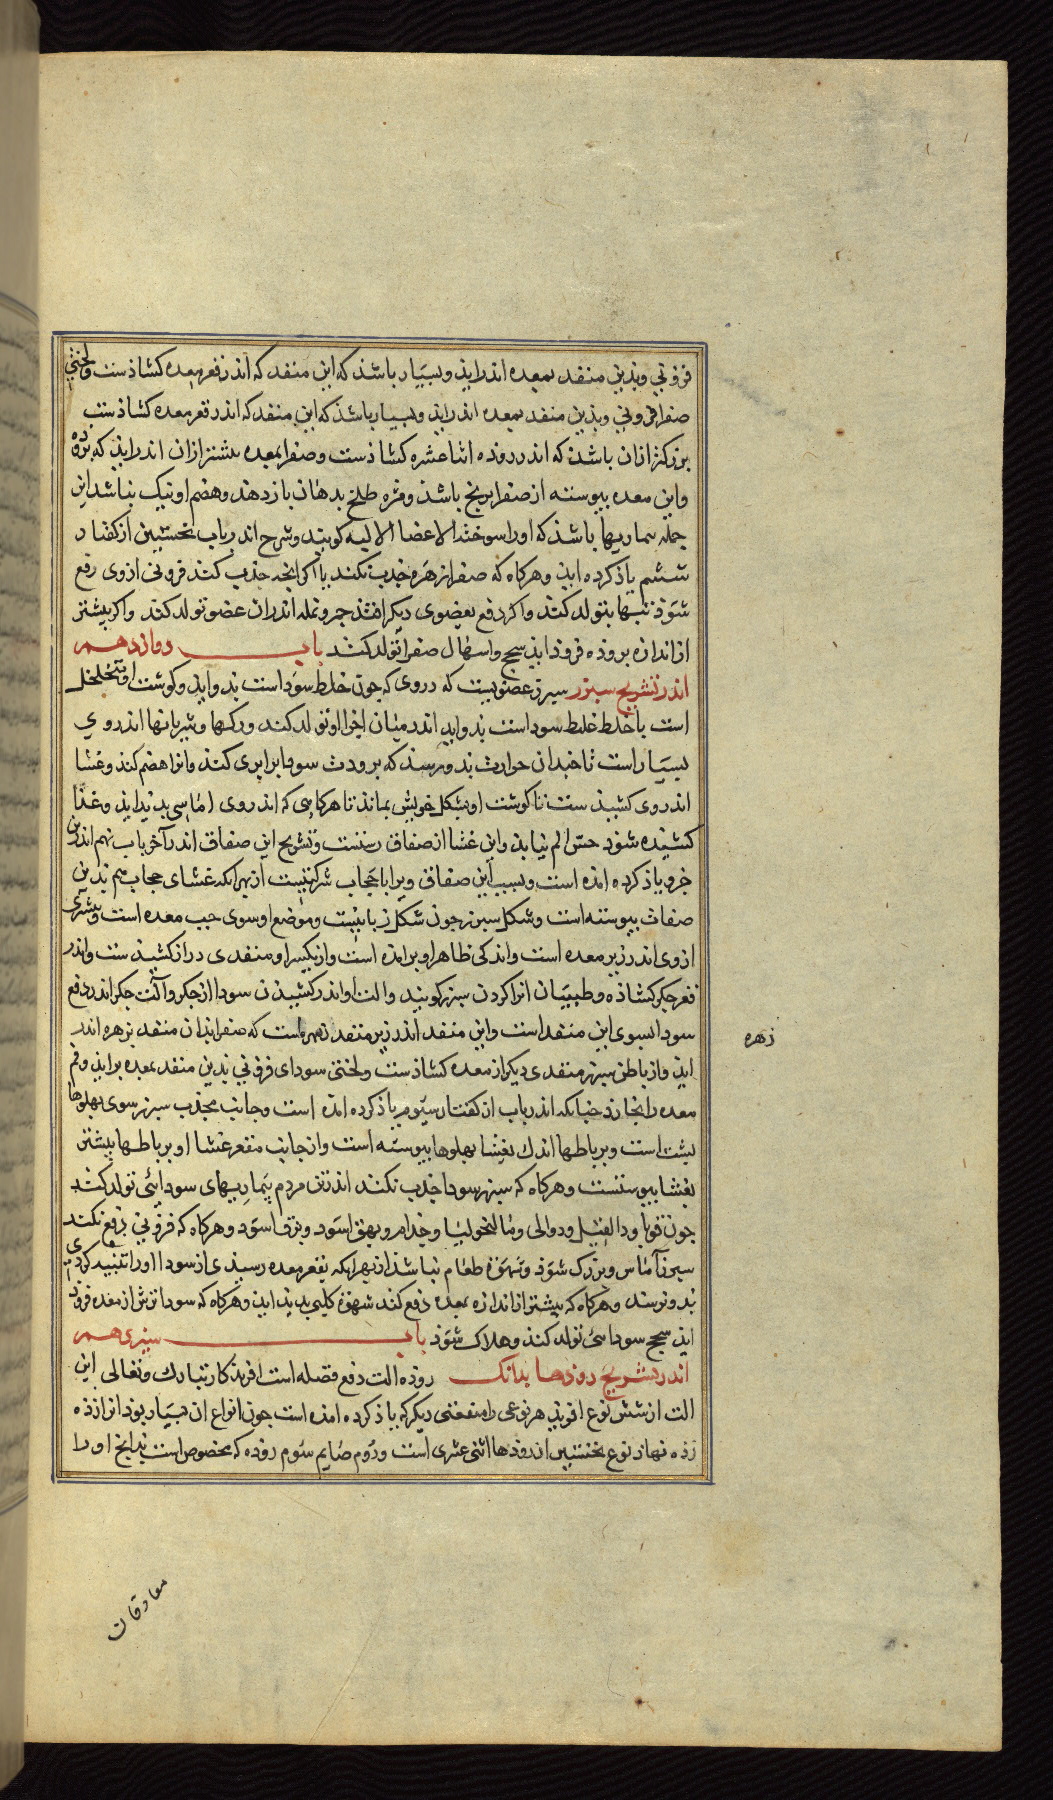 فزونی وبذین منفذ بمعده اندر ایذ وبسیار باشذ که این منفذ که اندر قعر معده کشاذست ولختی
صفرا فزونی وبذین منفذ بمعده اندر ایذ وبسیار باشذ که این منفذ که اندر قعر معده کشاذست
بزرکتر ازان باشذ که اندر روذه اثنا عشره کشاذست وصفرا بمعده بیشتر ازان اندر ایذ که بروذه
واین معده پیوسته از صفرا برنج باشذ ومزه طلخ بدهان باز دهذ وهضم او نیک نباشذ این
جمله بیماریها باشذ که اورا سوختة الاعضا الالیه کویند وشرح اندر باب نخستین از کفتار
ششم یاذ کرده ایذ وهرکاه که صفرا زهره جذب نکند یا اکر آنچه جذب کند فزونی از وی رفع
شوذ تبها تولد کند واکر دفع بعضوی دیکر افتذ جمره ونمله اندران عضو تولد کند واکر بیشتر
از اندازه بروذه فروذ ایذ سحج واسهال صفرا تولد کند باب دوازدهم
اندر تشریح سپرز سپرز عضویست که دروی که چون خلط سودا است بذو ایذ وکوشت او متخلخل
است یا خلط غلیط سودا است بذو ایذ اندر میان اجزا او تولد کند ورکها وشریانها اندروی
بسیار است تا چندان حرارت بذو رسذ که برودت سودا برابری کند وانرا هضم کند وغشا
اندروی کشیذست تا کوشت او بشکل خویش بماند تا هرکاهی که اندروی اماسی بدید ایذ وغذا
کشیذه شوذ حس الم نیابذ واین غشا از صفاق رستست وتشریح این صفاق اندر آخر باب نهم اندرین
جزو یاذ کرده امذه است وبسبب این صفاق ویرا با حجاب شرکتیست از بهر انکه غشای حجاب هم بذین
صفاق پیوسته است وشکل سپرز چون شکل زبانیست وموضع او سوی چپ معده است وبیشتری
ازوی اندر زیر معده است واندکی ظاهر او بر امذه است واز یکسر او منفذی دراز کشیذست واندر
قعر جکر کشاذه وطبیبان انرا کردن سپرز کویند والت او اندر کشیذن سودا از جکر وآلت جکر اندر دفع
سودا بسوی این منفذ است واین منفذ اندر زیر منفذ زهره است که صفرا بذان منفذ بزهره اندر
ایذ واز باطن سپرز منفذی دیکر از معده کشاذست ولختی سودای فزونی بذین منفذ بمعده بر ایذ وفم
معده را بخارذ چنانکه اندر باب از کفتار سیوم یاذ کرده امذه است وجانب محدب سپرز سوی پهلوها
پشت است وبرباطها اندک بغشا پهلوها پیوسته است واز جانب مقعر غشا او برباطها بیشتر
بغشا پیوستست وهرکاه که سپرز سودا جذب نکند اندر تن مردم بیماریهای سودائی تولد کند
چون قوبا وداالفیل ودوالی ومالنخولیا وجذام وبهق اسود وبرق اسود وهرکاه که فزونی دفع نکند
سپرز آماس وبزرک شوذ وشهوة طعام نباشذ از بهر انکه بقعر معده رسیذی از سودا اورا تنبیه کردی
بذو نرسذ وهرکاه که بیشتر از اندازه بمعده دفع کند شهوة کلبی بدید ایذ وهرکاه که سودا ترش از معده فروذ
ایذ سحج سودائی تولد کند وهلاک شوذ باب سیزدهم
اندر تشریح روذها بدانک روذه الت دفع فضله است افریذکار تبارک وتعالی این
الت از شش نوع افریذ هر نوعی را منفعتی دیکر که یاذ کرده امذه است چون انواع ان بسیار بوذ انرا زذه
زذه نهاذ نوع نخستین از روذها اثنی عشری است ودوم صایم سوم روذه که مخصوص است بذانچ اورا
زهره
معا دقاق